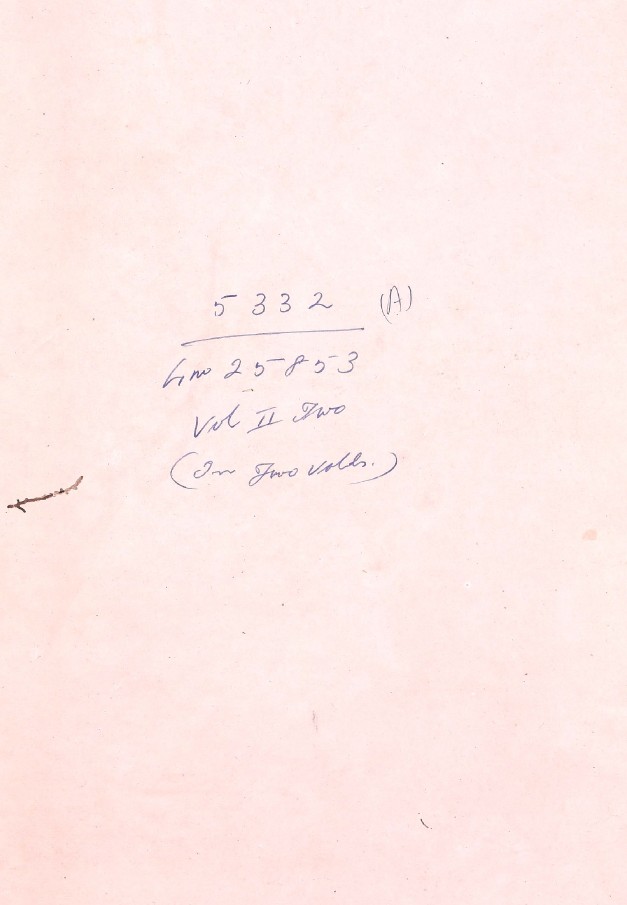 5332 (A)
Lno 25853
Vol II Two
(In Two Volds.)